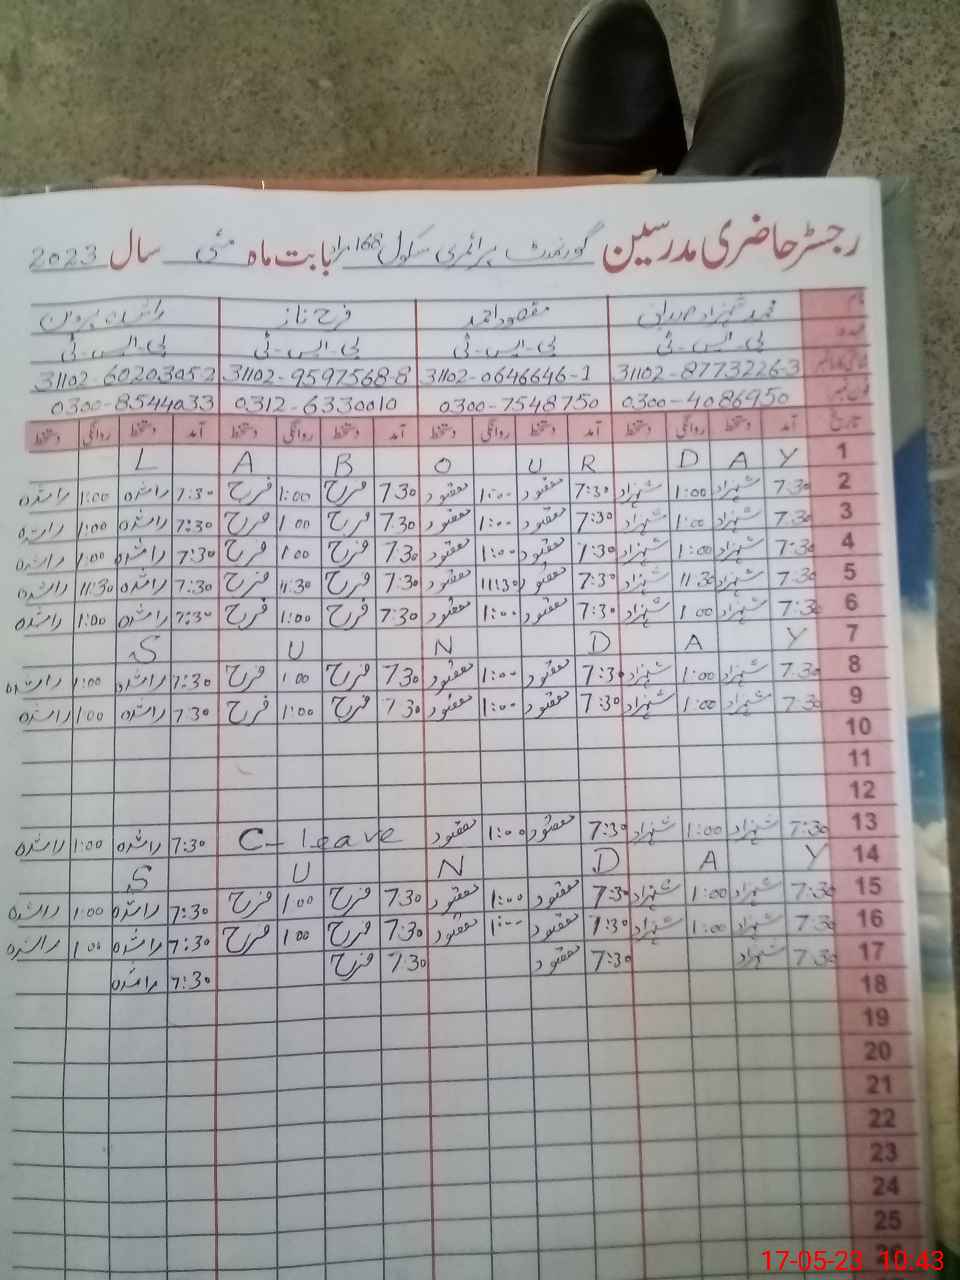 رجسٹر حاضری مدرسین گورنمنٹ پرائمری سکول 168 مراد بابت ماہ مئی سال 2023
نام محمد شہزاد صمدانی مقصود احمد فرح ناز راشدہ پروین
عہدہ پی-ایس-ٹی پی-ایس-ٹی پی-ایس-ٹی پی-ایس-ٹی
31102-8773226-3 31102-0646646-1 31102-9597568-8 31102-6020305-2
فون نمبر 0300-4086950 0300-7548750 0312-6330010 0300-8544033
تاریخ آمد دستخط روانگی دستخط آمد دستخط روانگی دستخط آمد دستخط روانگی دستخط آمد دستخط روانگی دستخط
1 L A B O U R D A Y
2 7:30 شہزاد 1:00 شہزاد 7:30 مقصود 1:00 مقصود 7:30 فرح 1:00 فرح 7:30 راشدہ 1:00 راشدہ
3 7:30 شہزاد 1:00 شہزاد 7:30 مقصود 1:00 مقصود 7:30 فرح 1:00 فرح 7:30 راشدہ 1:00 راشدہ
4 7:30 شہزاد 1:00 شہزاد 7:30 مقصود 1:00 مقصود 7:30 فرح 1:00 فرح 7:30 راشدہ 1:00 راشدہ
5 7:30 شہزاد 11:30 شہزاد 7:30 مقصود 11:30 مقصود 7:30 فرح 11:30 فرح 7:30 راشدہ 11:30 راشدہ
6 7:30 شہزاد 1:00 شہزاد 7:30 مقصود 1:00 مقصود 7:30 فرح 1:00 فرح 7:30 راشدہ 1:00 راشدہ
7 S U N D A Y
8 7:30 شہزاد 1:00 شہزاد 7:30 مقصود 1:00 مقصود 7:30 فرح 1:00 فرح 7:30 راشدہ 1:00 راشدہ
9 7:30 شہزاد 1:00 شہزاد 7:30 مقصود 1:00 مقصود 7:30 فرح 1:00 فرح 7:30 راشدہ 1:00 راشدہ
10
11
12
13 7:30 شہزاد 1:00 شہزاد 7:30 مقصود 1:00 مقصود C- leave 7:30 راشدہ 1:00 راشدہ
14 S U N D A Y
15 7:30 شہزاد 1:00 شہزاد 7:30 مقصود 1:00 مقصود 7:30 فرح 1:00 فرح 7:30 راشدہ 1:00 راشدہ
16 7:30 شہزاد 1:00 شہزاد 7:30 مقصود 1:00 مقصود 7:30 فرح 1:00 فرح 7:30 راشدہ 1:00 راشدہ
17 7:30 شہزاد 7:30 مقصود 7:30 فرح 7:30 راشدہ
18
19
20
21
22
23
24
25
26
17-05-23 10:43